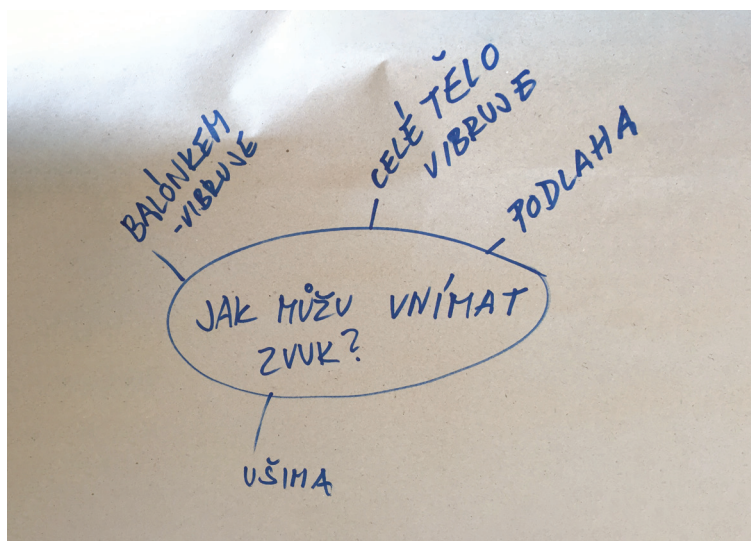 BALÓNKEM
-VIBRUJE
CELÉ TĚLO
VIBRUJE
PODLAHA
JAK MŮŽU VNÍMAT
ZVUK?
UŠIMA